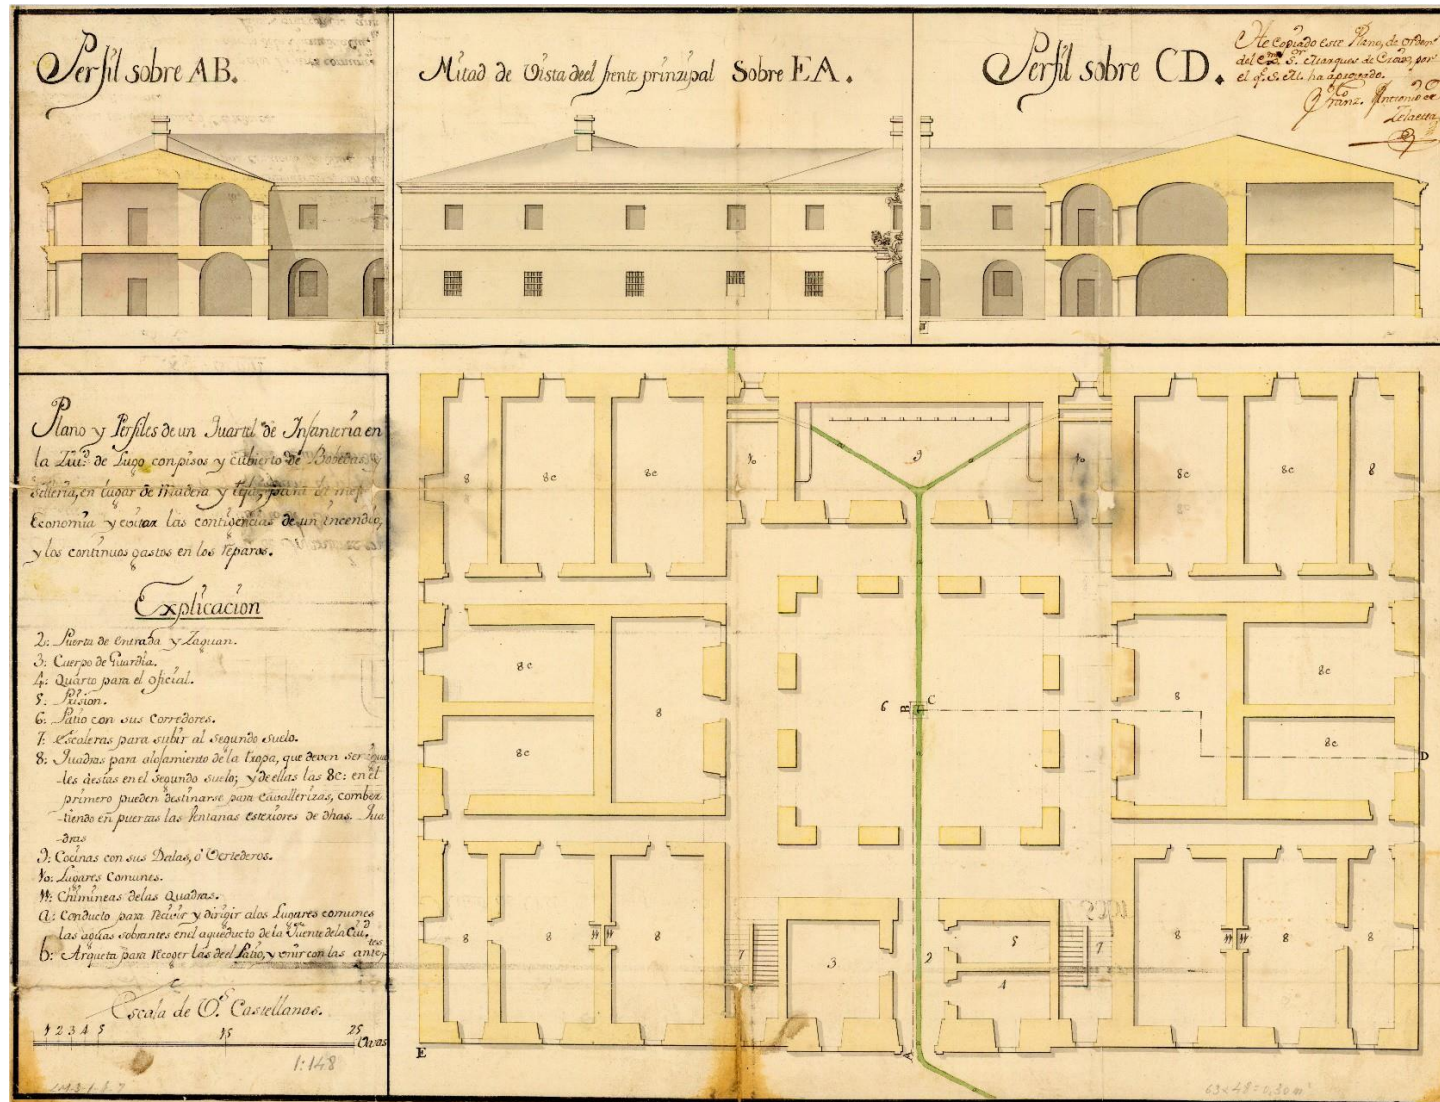 Perfil sobre AB.
Mitad de Vista deel frente prinzipal Sobre EA.
Perfil sobre CD.
He copiado este Plano, de orden
del Exmo. Sr. Marques de Croix, por
el q. S. M. ha aprovado.
Franz. Antonio de
Zelaeta
Plano y Perfiles de un Quartel de Infanteria en
la Ziud. de Lugo con pisos y cubierto de Bobedas, y
Silleria, en lugar de Madera y teja, para la mejr.
Economia y evitar las contigencias de un incendio,
y los continuos gastos en los reparos.
Explicacion
2: Puerta de entrada y Zaguan.
3: Cuerpo de Guardia.
4: Quarto para el oficial.
5: Prision.
6: Patio con sus Corredores.
7: escaleras para subir al segundo suelo.
8: Quadras para alojamiento de la tropa, que deven ser igua
-les aestas en el segundo suelo; y de ellas las 8c: en el
primero pueden destinarse para cavallerizas, combir
-tiendo en puertas las Ventanas exteriores de dhas. Qua
-dras
9: Cocinas con sus Dalas, ó Vertederos.
10: Lugares Comunes.
11: Chimineas de las Quadras.
a: Conducto para recivir y dirigir alos Lugares comunes
las aguas sobrantes en el aqueducto de la Fuente de la Ciud.
b: Arqueta para recoger las deel Patio, y unir con las antes
Escala de Vs. Castellanas.
1 2 3 4 5 15 25 Varas
1:148
8 8c 8c 10 9 10 8c 8c 8
8c 8 8c
6 B C
8c 8 8c D
8 8 11 11 8 7 3 2 5 4 7 8 11 11 8 8
E A
63 x 48 = 0,30 m²